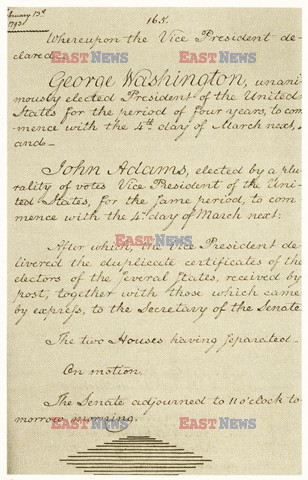 February 13th 165.
1793
Whereupon the Vice President de-
clared
EASTNEWS EASTNEWS
George Washington, unani-
mously elected President of the United
States for the period of four years, to com-
mence with the 4th day of March next,
and—
John Adams, elected by a plu-
rality of votes Vice President of the Uni-
ted States, for the same period, to com-
mence with the 4th day of March next:
After which, the Vice President de-
EASTNEWS
livered the duplicate certificates of the
electors of the several States, received by
post, together with those which came
by express, to the Secretary of the Senate
The two Houses having separated—
On motion,
The Senate adjourned to 11 o'clock to
morrow morning.
EASTNEWS EASTNEWS